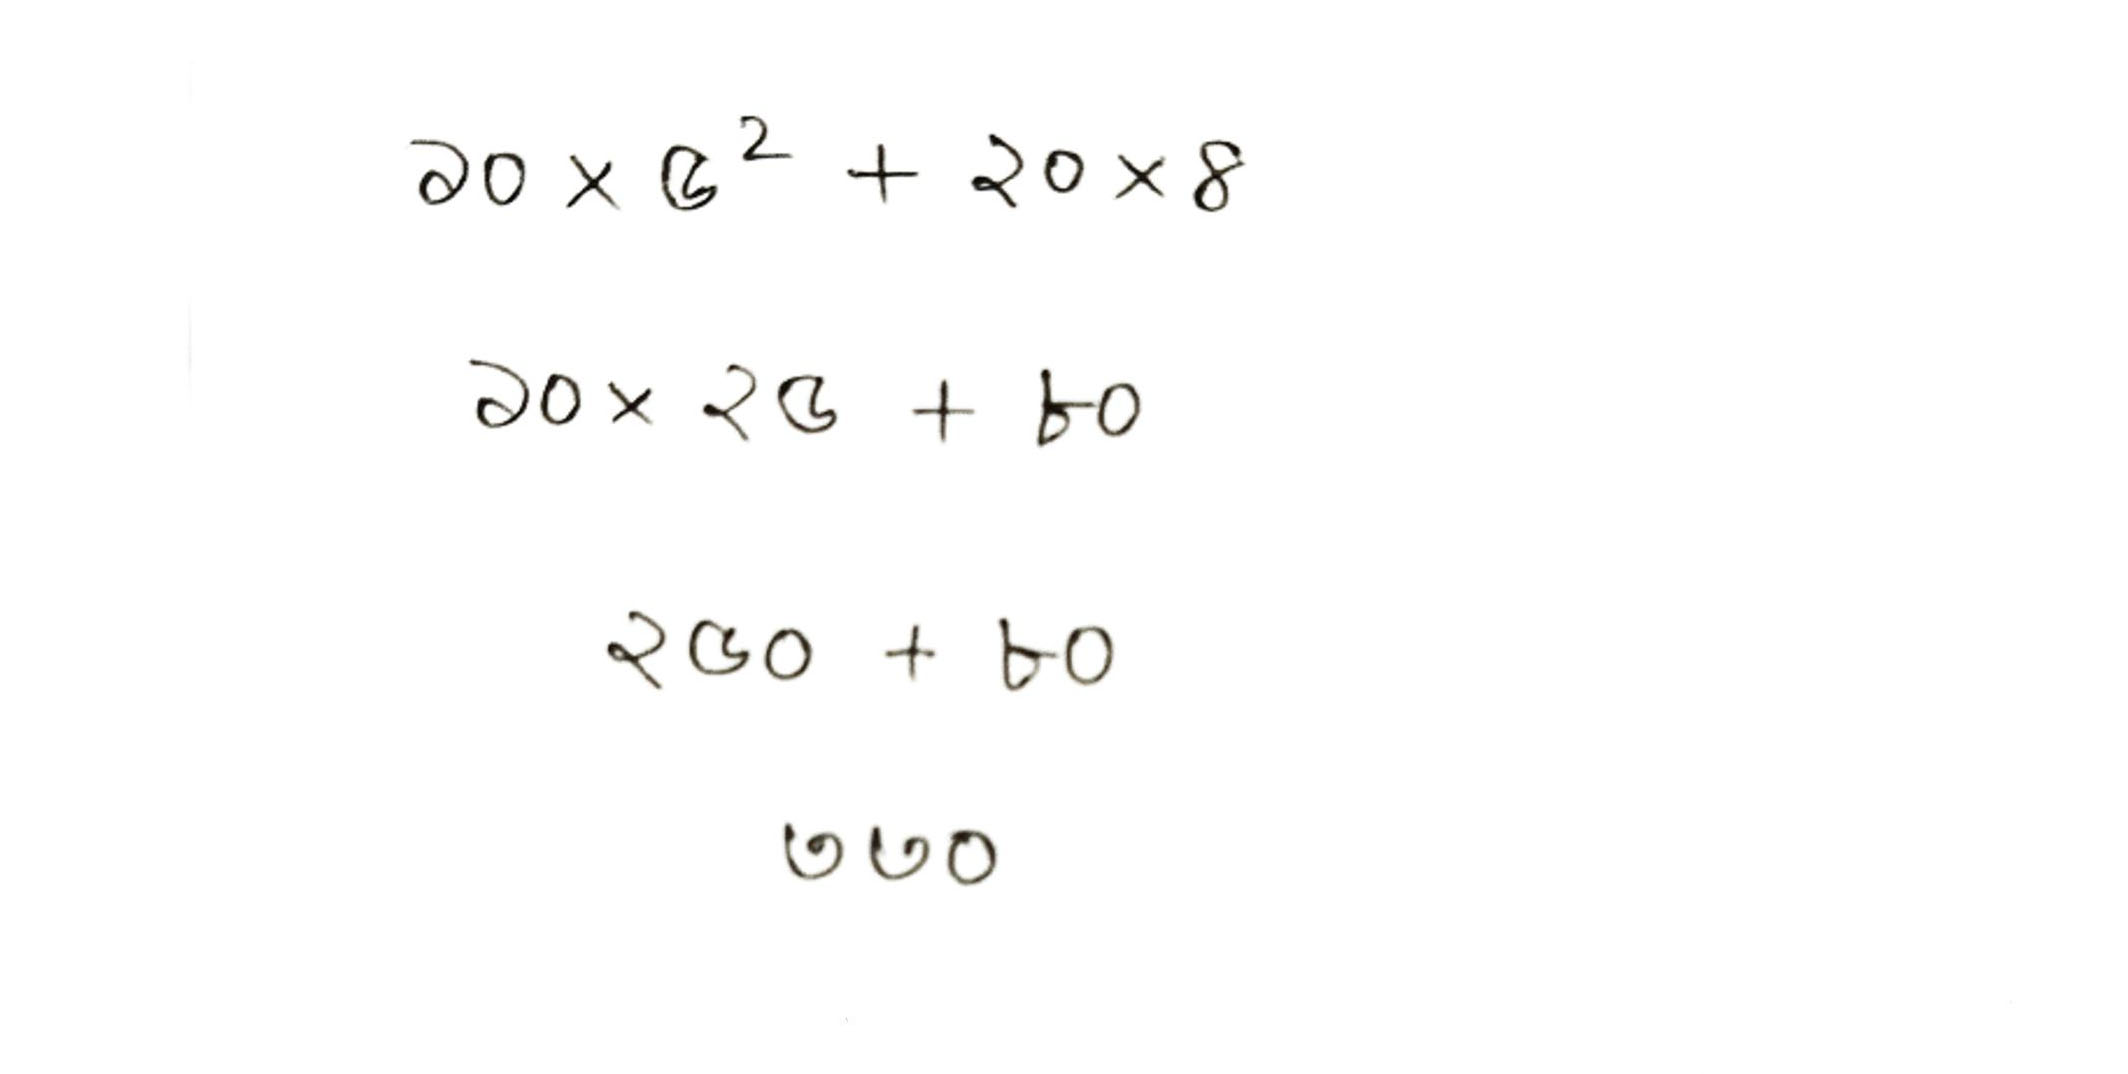 ১০ × ৫² + ২০ × ৪
১০ × ২৫ + ৮০
২৫০ + ৮০
৩৩০